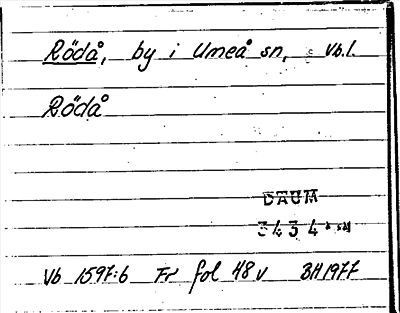 Rödå, by i Umeå sn, Vb.l.
Rödå
DAUM
3434
Vb 1597:6 Fr fol 48v BH1977